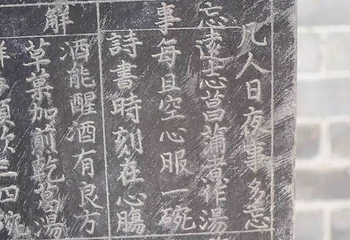 凡人日夜事多忘
忘
遠志菖蒲煮作湯
事
每且空心服一碗
詩書時刻在心腸
解
酒能醒酒有良方
草菓加前乾葛湯
須飲三四碗